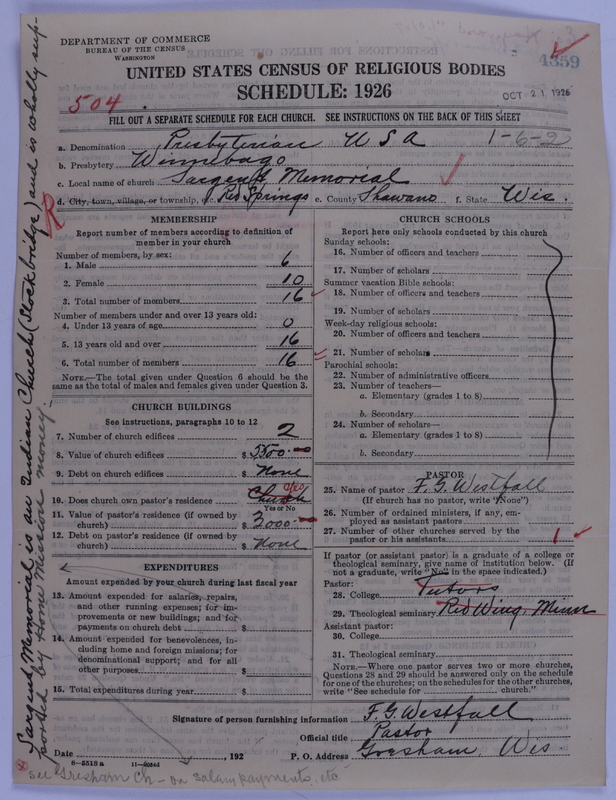 DEPARTMENT OF COMMERCE
BUREAU OF THE CENSUS
WASHINGTON
4359
UNITED STATES CENSUS OF RELIGIOUS BODIES
SCHEDULE: 1926
504
OCT 21 1926
FILL OUT A SEPARATE SCHEDULE FOR EACH CHURCH. SEE INSTRUCTIONS ON THE BACK OF THIS SHEET
a. Denomination Presbyterian U S A 1-6-2
b. Presbytery Winnebago
c. Local name of church Sargent Memorial
d. City, town, village, or township, etc. Red Springs e. County Shawano f. State Wis.
MEMBERSHIP
Report number of members according to definition of member in your church
Number of members, by sex:
1. Male 6
2. Female 10
3. Total number of members 16
Number of members under and over 13 years old:
4. Under 13 years of age 0
5. 13 years old and over 16
6. Total number of members 16
NOTE.—The total given under Question 6 should be the same as the total of males and females given under Question 3.
CHURCH BUILDINGS
See instructions, paragraphs 10 to 12
7. Number of church edifices 2
8. Value of church edifices $ 5500.
9. Debt on church edifices $ None
10. Does church own pastor's residence Church yes
Yes or No
11. Value of pastor's residence (if owned by church) $ 2000.
12. Debt on pastor's residence (if owned by church) $ None
EXPENDITURES
Amount expended by your church during last fiscal year
13. Amount expended for salaries, repairs, and other running expenses; for improvements or new buildings; and for payments on church debt $
14. Amount expended for benevolences, including home and foreign missions; for denominational support; and for all other purposes $
15. Total expenditures during year $
CHURCH SCHOOLS
Report here only schools conducted by this church
Sunday schools:
16. Number of officers and teachers
17. Number of scholars
Summer vacation Bible schools:
18. Number of officers and teachers
19. Number of scholars
Week-day religious schools:
20. Number of officers and teachers
21. Number of scholars
Parochial schools:
22. Number of administrative officers
23. Number of teachers—
a. Elementary (grades 1 to 8)
b. Secondary
24. Number of scholars—
a. Elementary (grades 1 to 8)
b. Secondary
PASTOR
25. Name of pastor F. G. Westfall
(If church has no pastor, write "None")
26. Number of ordained ministers, if any, employed as assistant pastors
27. Number of other churches served by the pastor or his assistants 1
If pastor (or assistant pastor) is a graduate of a college or theological seminary, give name of institution below. (If not a graduate, write "No" in the space indicated.)
Pastor:
28. College Tutors
29. Theological seminary Red Wing, Minn
Assistant pastor:
30. College
31. Theological seminary
NOTE.—Where one pastor serves two or more churches, Questions 28 and 29 should be answered only on the schedule for one of the churches; on the schedules for the other churches, write "See schedule for church."
Signature of person furnishing information F. G. Westfall
Official title Pastor
Date , 192 P. O. Address Gresham, Wis.
8-5518a
see Gresham Ch - on salary payments, etc
Sargent Memorial is an Indian Church (Stockbridge) and is wholly supported by Home Mission money.